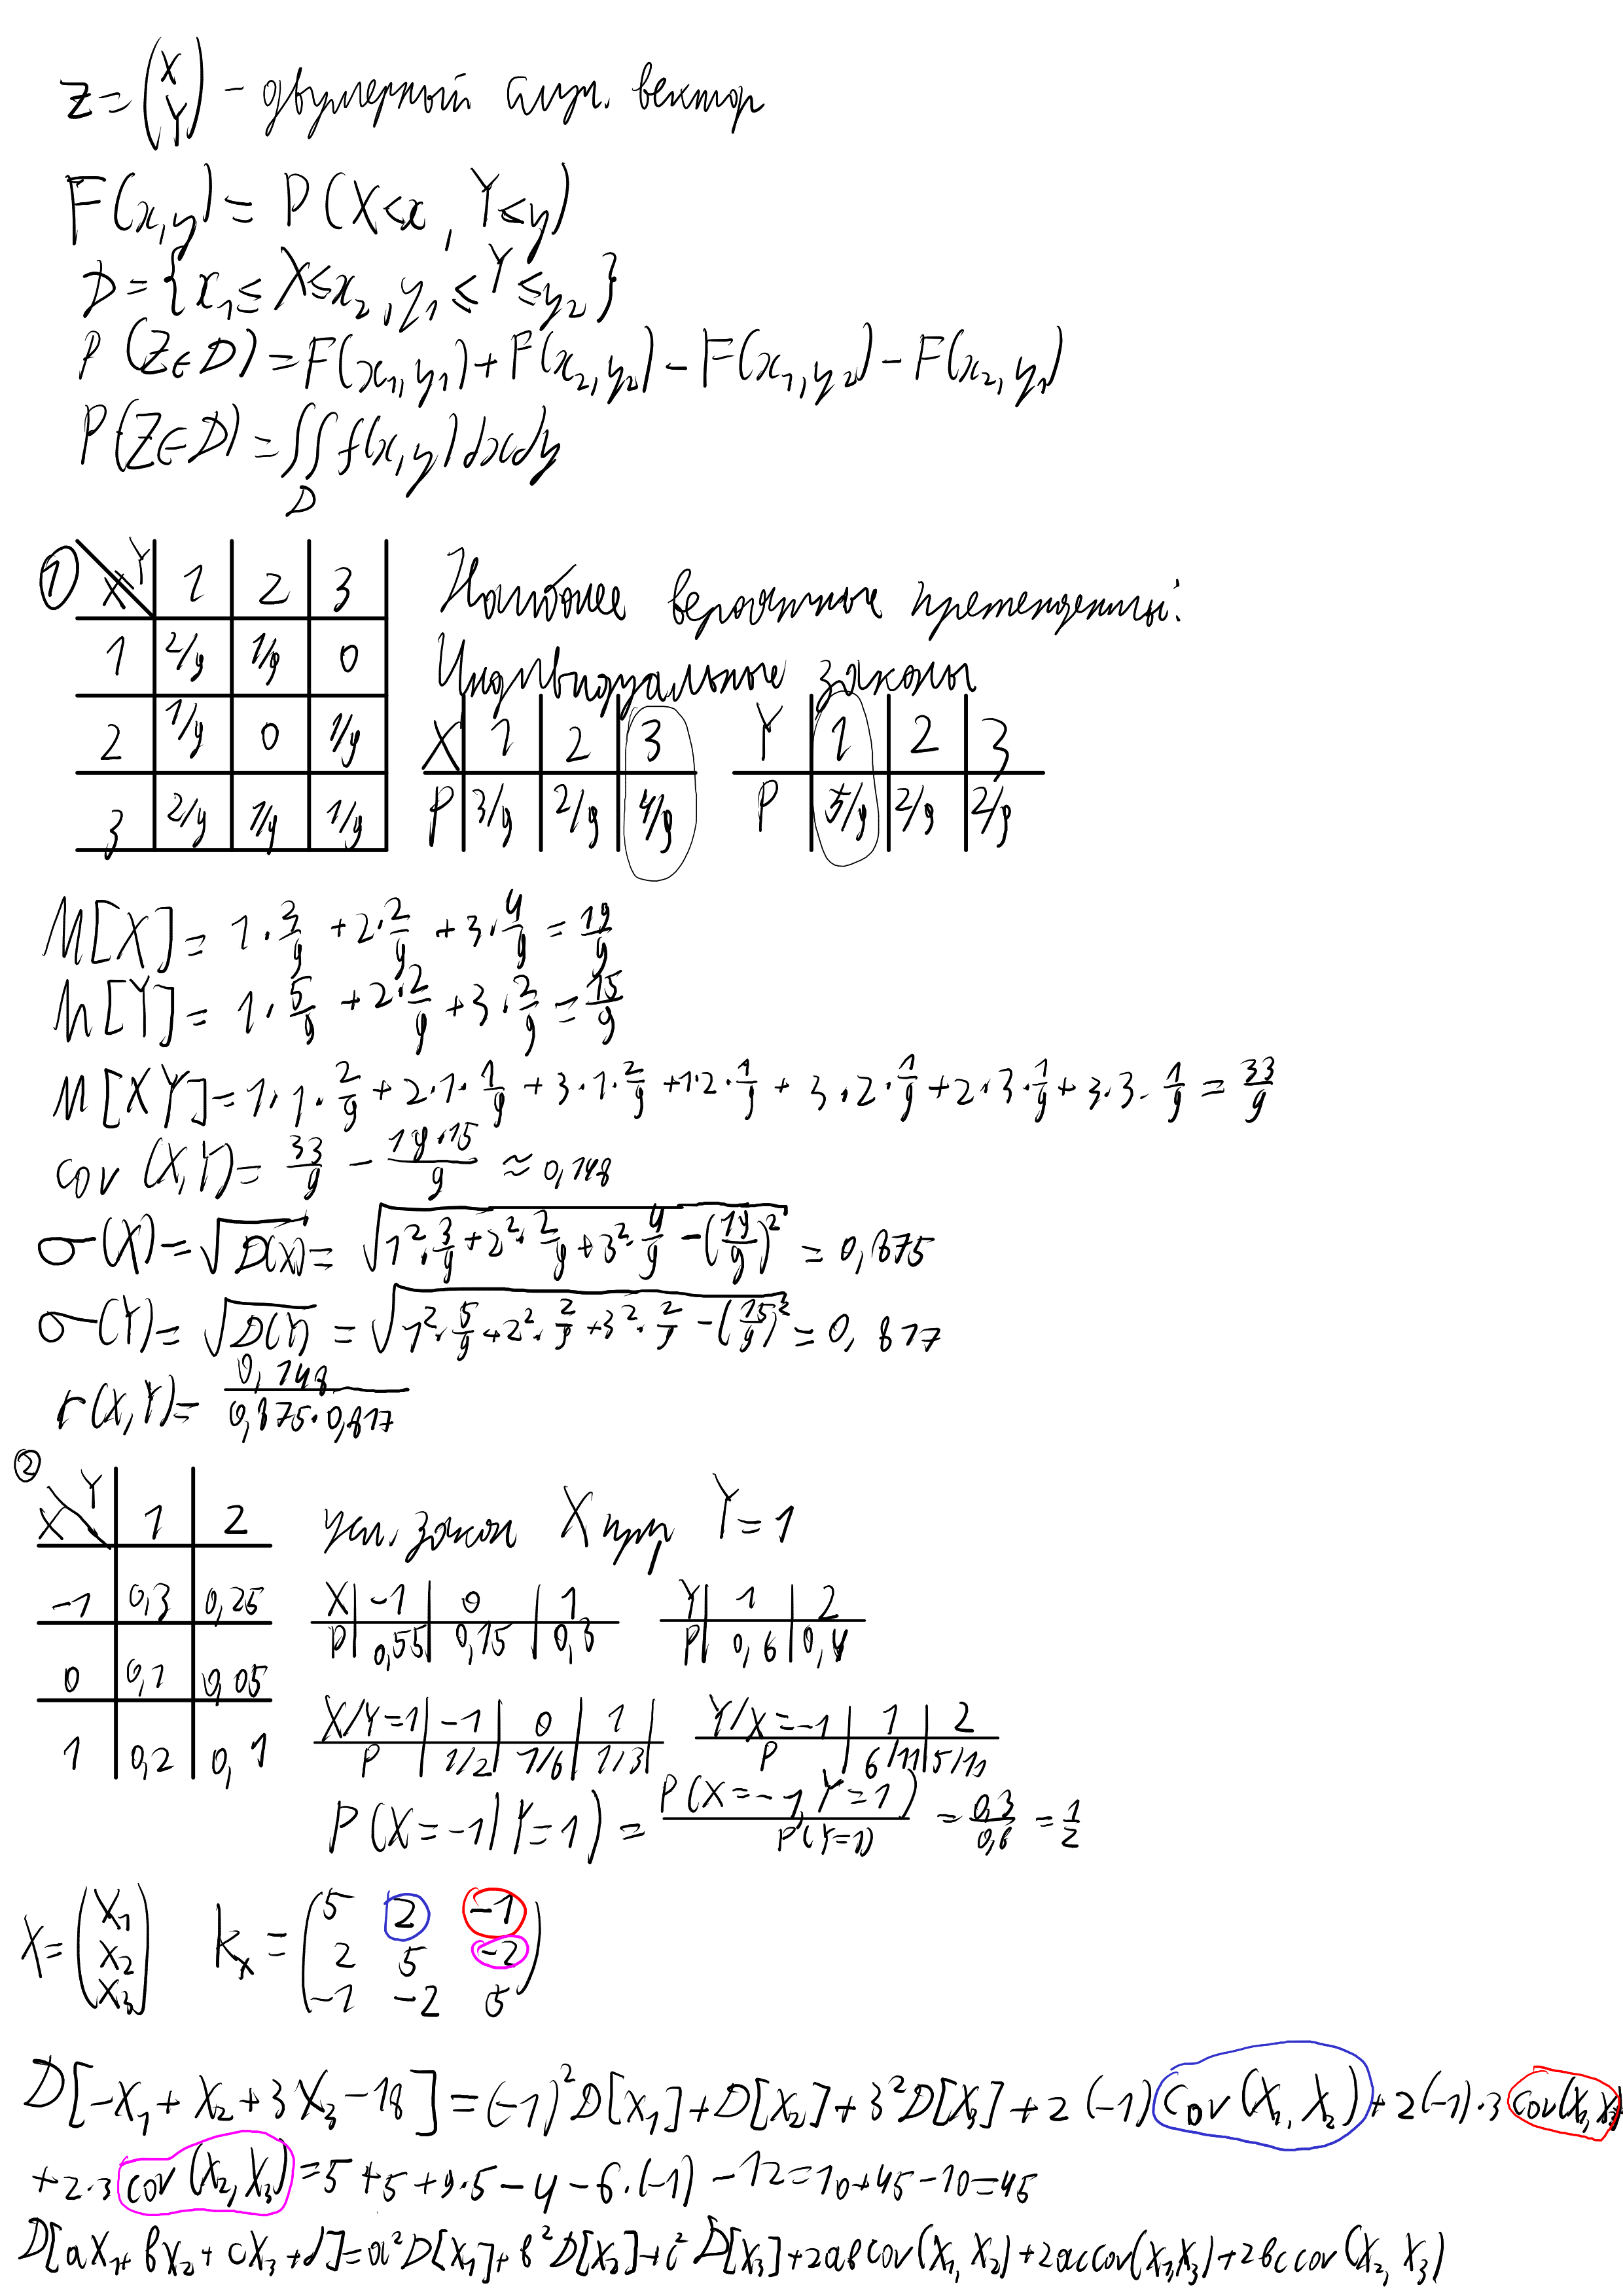 Z = (X Y) - двумерный случ. вектор
F(x,y) = P(X≤x, Y≤y)
D = {x₁ ≤ X ≤ x₂, y₁ ≤ Y ≤ y₂}
P(Z∈D) = F(x₁,y₁) + F(x₂,y₂) - F(x₁,y₂) - F(x₂,y₁)
P(Z∈D) = ∬ f(x,y)dxdy
D
① X Y 1 2 3
1 2/9 1/9 0
2 1/9 0 1/9
3 2/9 1/9 1/9
Наиболее вероятные претенденты:
Индивидуальные законы
X 1 2 3
P 3/9 2/9 4/9
Y 1 2 3
P 5/9 2/9 2/9
M[X] = 1·3/9 + 2·2/9 + 3·4/9 = 19/9
M[Y] = 1·5/9 + 2·2/9 + 3·2/9 = 15/9
M[XY] = 1·1·2/9 + 2·1·1/9 + 3·1·2/9 + 1·2·1/9 + 3·2·1/9 + 2·3·1/9 + 3·3·1/9 = 33/9
cov(X,Y) = 33/9 - 19·15/9 ≈ 0,148
σ(X) = √D(X) = √(1²·3/9 + 2²·2/9 + 3²·4/9 - (19/9)²) = 0,875
σ(Y) = √D(Y) = √(1²·5/9 + 2²·2/9 + 3²·2/9 - (15/9)²) = 0,817
r(X,Y) = 0,148/(0,875·0,817)
② X Y 1 2
-1 0,3 0,25
0 0,1 0,05
1 0,2 0,1
усл. закон X при Y = 1
X -1 0 1
P 0,55 0,15 0,3
Y 1 2
P 0,6 0,4
X/Y=1 -1 0 1
P 1/2 1/6 1/3
Y/X=-1 1 2
P 6/11 5/11
P(X=-1|Y=1) = P(X=-1, Y=1)/P(Y=1) = 0,3/0,6 = 1/2
X = (X₁ X₂ X₃)
kₓ = (5 2 -1
2 5 -2
-1 -2 5)
D[-X₁ + X₂ + 3X₃ - 18] = (-1)²D[X₁] + D[X₂] + 3²D[X₃] + 2(-1)cov(X₁, X₂) + 2(-1)·3 cov(X₁, X₃)
+ 2·3 cov(X₂, X₃) = 5 + 5 + 9·5 - 4 - 6·(-1) - 12 = 10 + 45 - 10 = 45
D[aX₁ + bX₂ + cX₃ + d] = a²D[X₁] + b²D[X₂] + c²D[X₃] + 2ab cov(X₁, X₂) + 2ac cov(X₁, X₃) + 2bc cov(X₂, X₃)